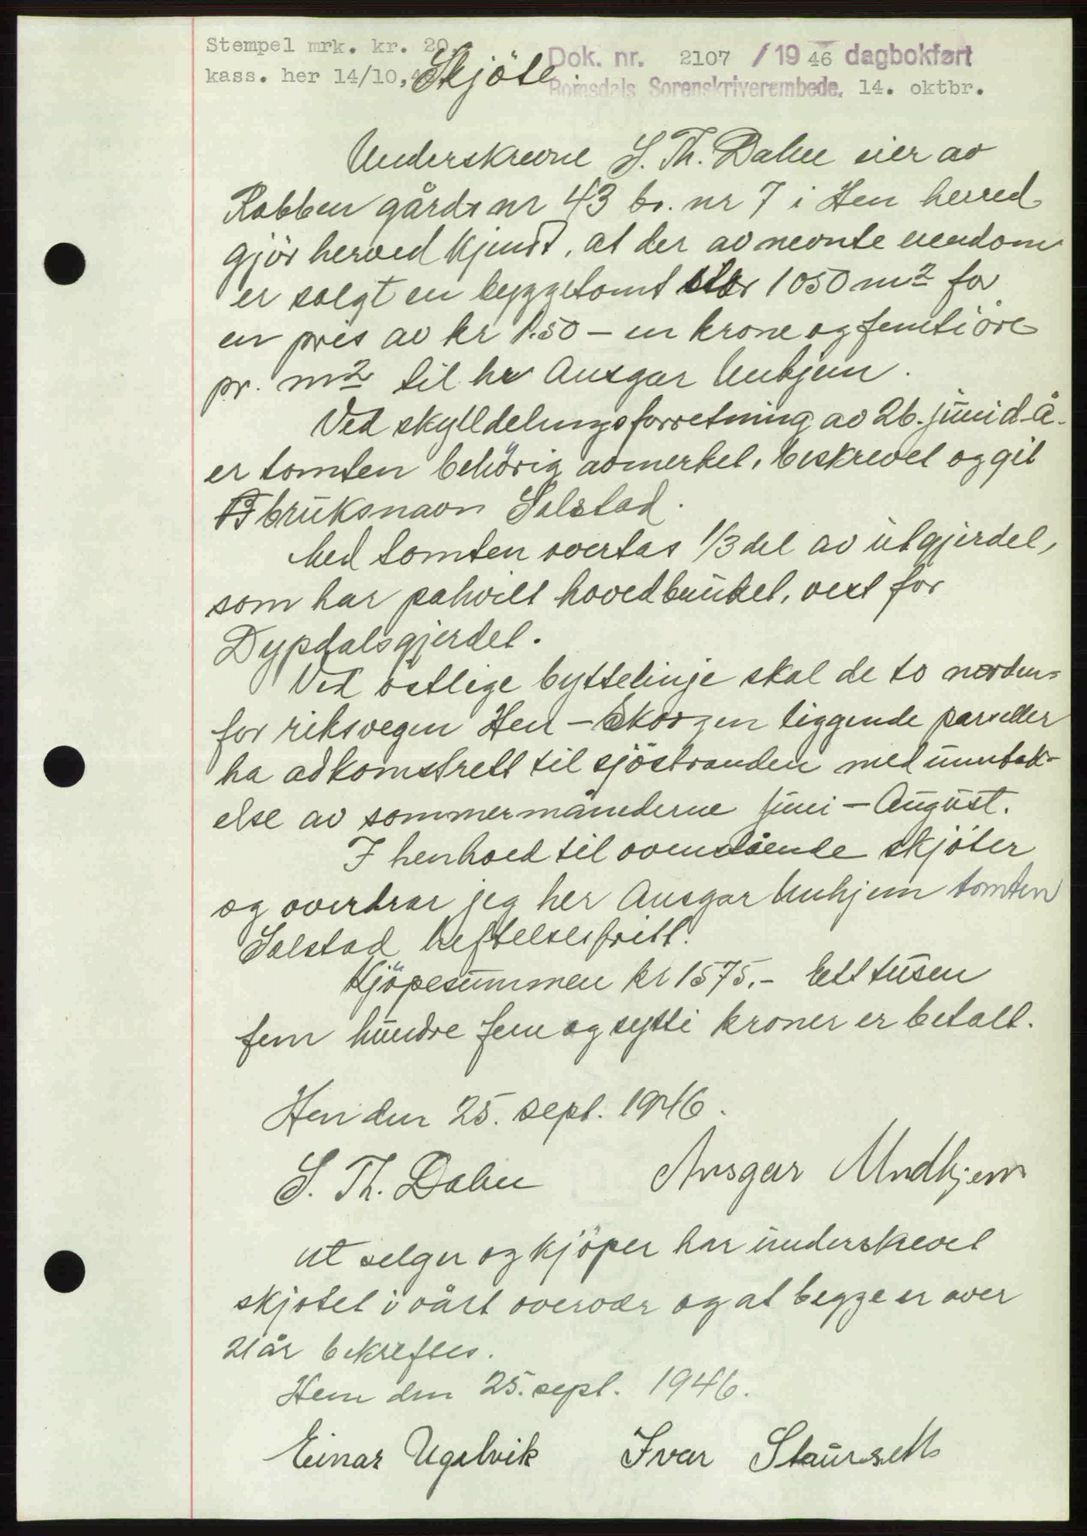 Stempel mrk. kr. 20,
kass. her 14/10,46
Skjöte
Dok. nr. 2107 / 19 46 dagbokført
Romsdals Sorenskriverembede, 14. oktbr.
Underskrevne S. Th. Dahu eier av
Rabben gårds nr 43 br. nr 7 i Hen herred
gjör herved kjendt, at der av nevnte eiendom
er solgt en byggetomt stor 1050 m² for
en pris av kr 1.50 – en krone og femti öre
pr. m² til hr Ansgar Unhjem.
Ved skylldelingsforretning av 26. juni d.å.
er tomten behörig avmerket, beskrevet og git
bruksnavn Solstad.
Med tomten overtas 1/3 del av utgjerdet,
som har påhvilt hovedbruket, vest for
Dypdalsgjerdet.
Ved östlige byttelinje skal de to norden-
for riksvegen Hen – Skorgen liggende parseller
ha adkomstrett til sjöstranden med unntak-
else av sommermånederne Juni – August.
I henhold til ovenstående skjöter
og overdrar jeg her Ansgar Unhjem tomten
Solstad heftelsesfritt.
Kjöpesummen kr 1575,- Ett tusen
fem hundre fem og sytti kroner er betalt.
Hen den 25. sept. 1946.
S. Th. Dahu Ansgar Undhjem
At selger og kjöper har underskrevet
skjötet i vårt overvær og at begge er over
21 år bekreftes.
Hen den 25. sept. 1946.
Einar Ugelvik Ivar Staurseth